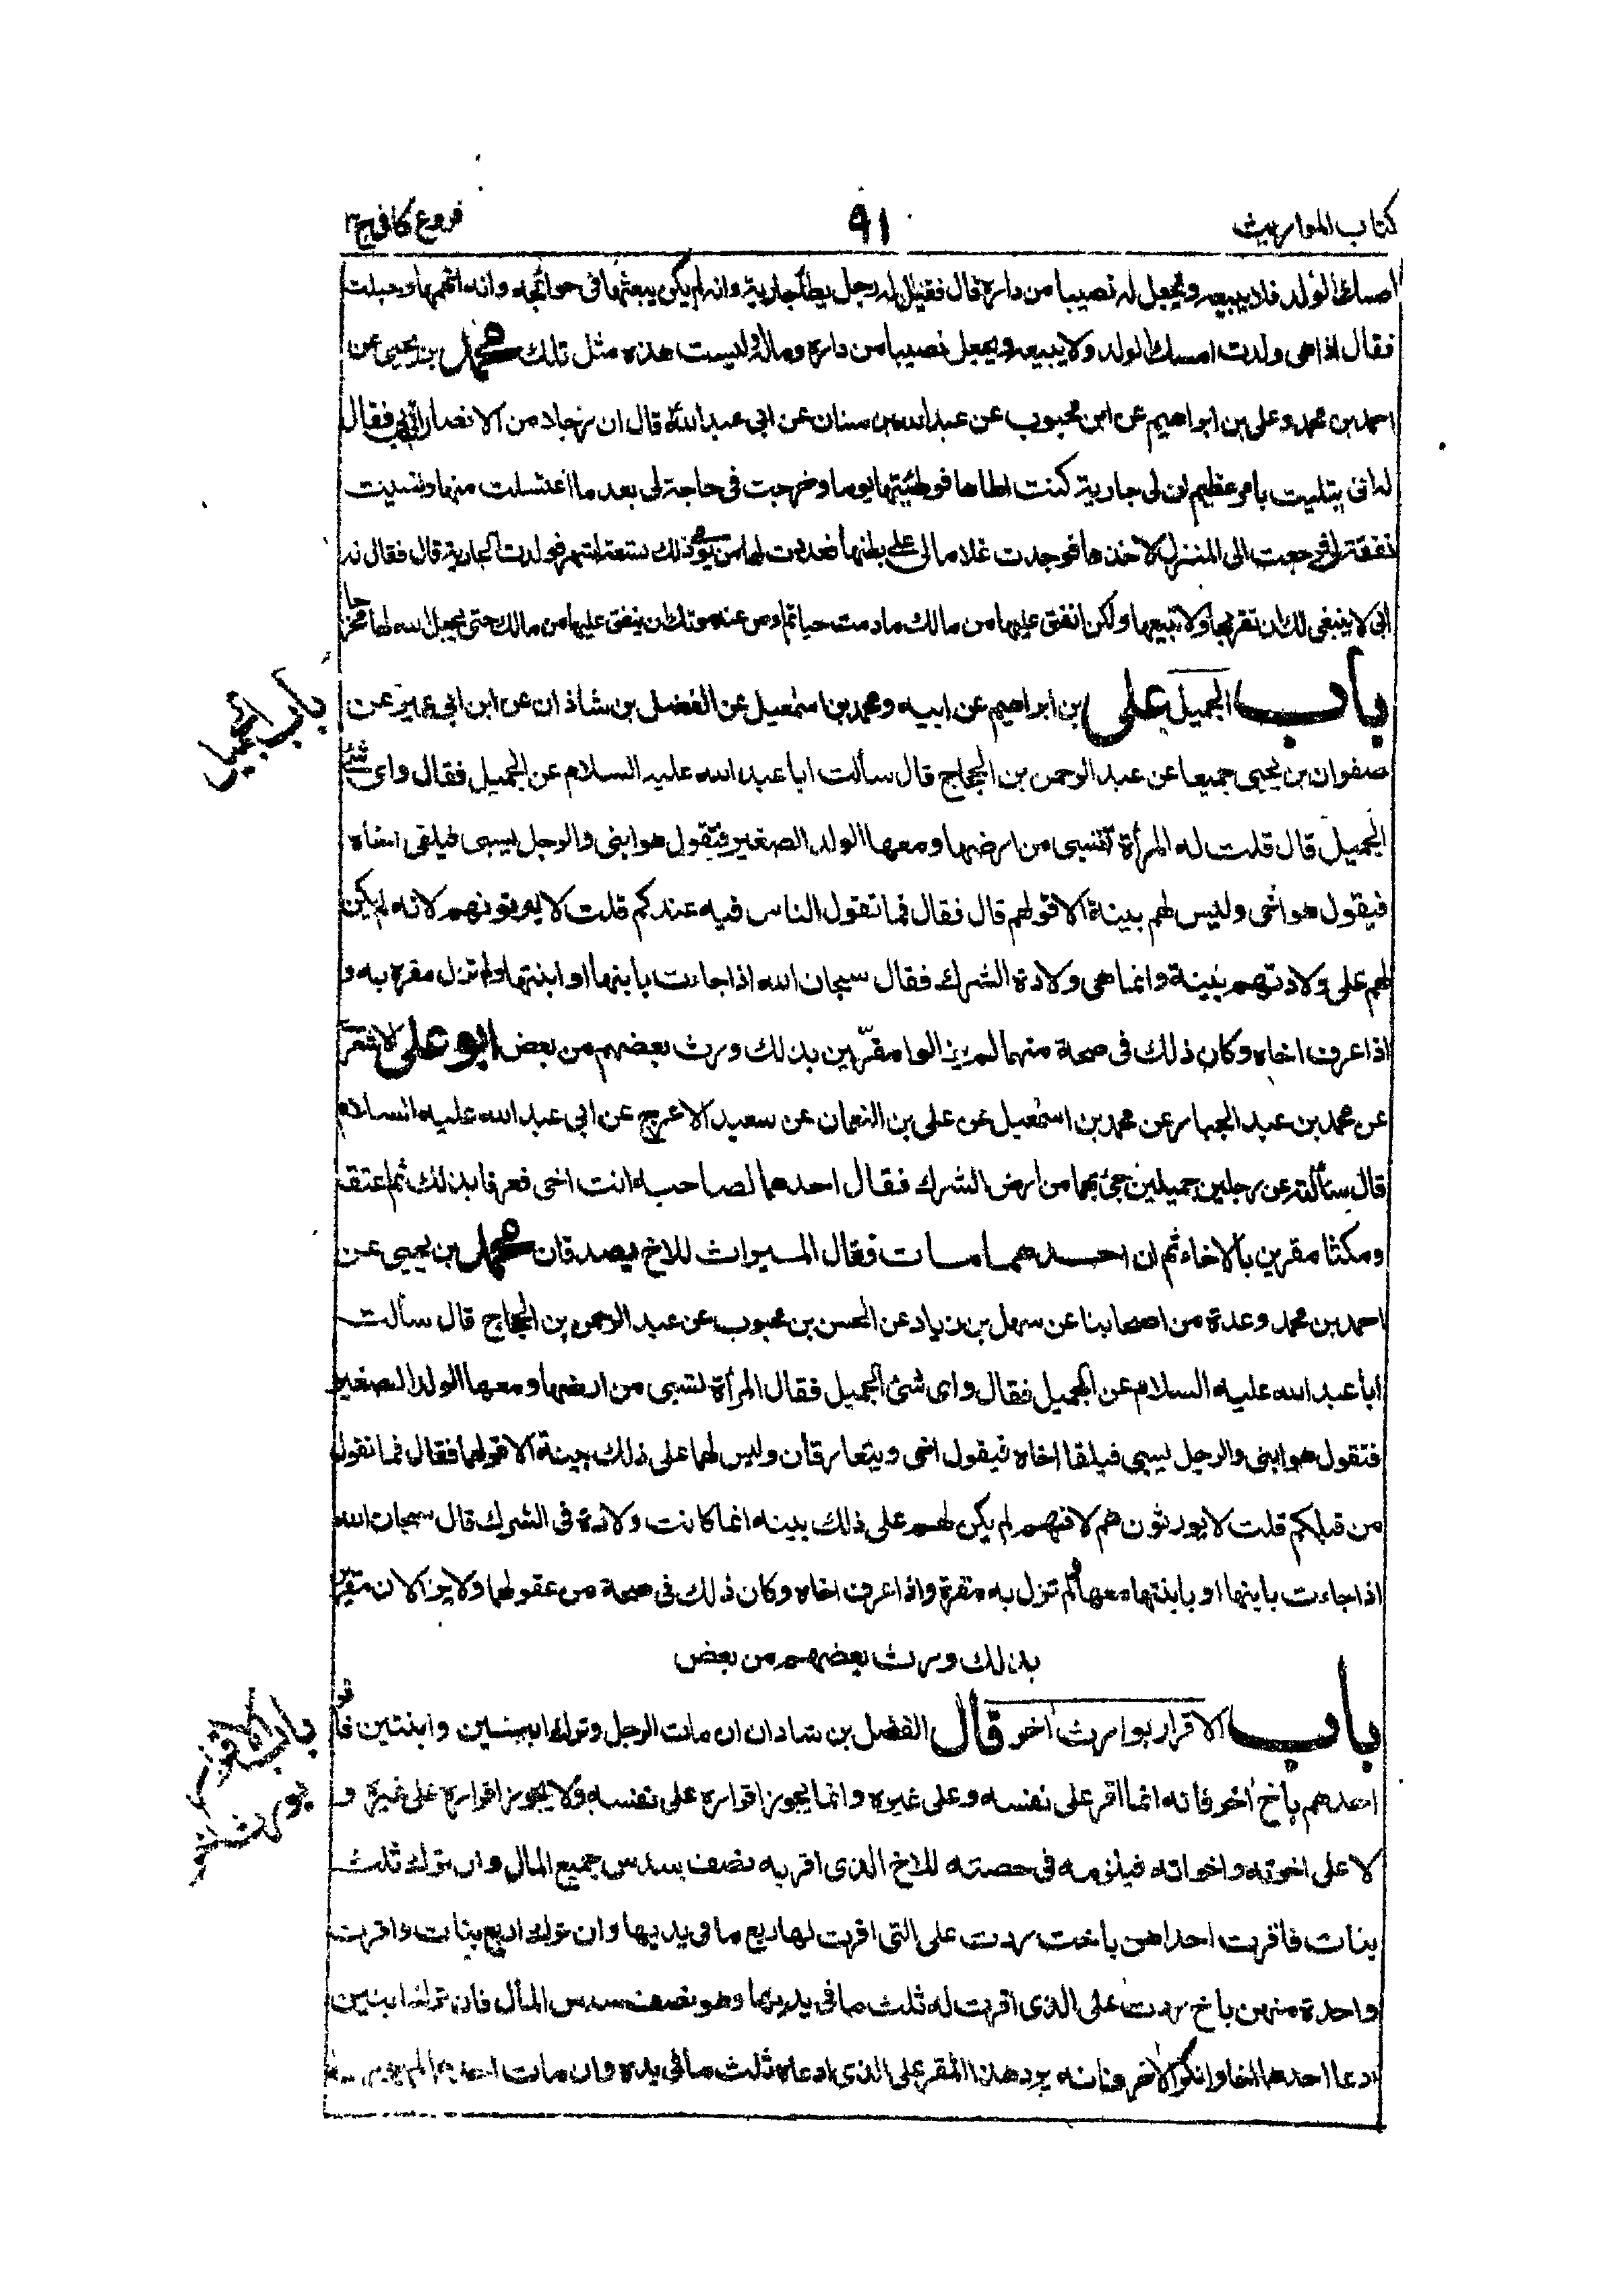 كتاب المواريث
٩١
فروع كافى ج٣
امسك الولد فلا يبيعه ويجعل له نصيبا من داره قال فقيل له رجل يطأ جارية وانه لم يكن يبعثها فى حوائجه وانه اتهمها وحبلت
فقال اذا هى ولدت امسك الولد ولا يبيعه ويجعل نصيبا من داره وماله وليست هذه مثل تلك محمد بن يحيى عن
احمد بن محمد وعلى بن ابراهيم عن ابن محبوب عن عبد الله بن سنان عن ابى عبد الله قال ان رجلا من الانصار اتى ابى فقال
له انى ابتليت بامر عظيم ان لى جارية كنت اطاها فوطئتها يوما وخرجت فى حاجة لى بعد ما اغتسلت منها ونسيت
نفقة لى فرجعت الى المنزل لاخذها فوجدت غلاما لى على بطنها فعددت لها من يومى ذلك تسعة اشهر فولدت الجارية قال فقال له
ابى لا ينبغى لك ان تقربها ولا تبيعها ولكن انفق عليها من مالك ما دمت حيا ثم اوص عند موتك ان ينفق عليها من مالك حتى يجعل الله لها مخرجا
باب الجميل على بن ابراهيم عن ابيه ومحمد بن اسمعيل عن الفضل بن شاذان عن ابن ابى عمير عن
باب الجميل
صفوان بن يحيى جميعا عن عبد الرحمن بن الحجاج قال سألت ابا عبد الله عليه السلام عن الجميل فقال واى شئ
الجميل قال قلت له المرأة تسبى من ارضها ومعها الولد الصغير فتقول هو ابنى والرجل يسبى فيلقى اخاه
فيقول هو اخى وليس لهم بينة الا قولهم قال فقال فما تقول الناس فيه عندكم قلت لا يورثونهم لانه لم يكن
لهم على ولادتهم بينة وانما هى ولادة الشرك فقال سبحان الله اذا جاءت بابنها او ابنتها ولم تزل مقرة به و
اذا عرف اخاه وكان ذلك فى صحة منهما لم يزالوا مقرّين بذلك ورث بعضهم من بعض ابو على الاشعرى
عن محمد بن عبد الجبار عن محمد بن اسمعيل عن على بن النعمان عن سعيد الاعرج عن ابى عبد الله عليه السلام
قال سألته عن رجلين جميلين جئ بهما من ارض الشرك فقال احدهما لصاحبه انت اخى فعرفا بذلك ثم اعتقا
ومكثا مقرين بالاخاء ثم ان احدهما مات فقال الميراث للاخ يصدقان محمد بن يحيى عن
احمد بن محمد وعدة من اصحابنا عن سهل بن زياد عن الحسن بن محبوب عن عبد الرحمن بن الحجاج قال سألت
ابا عبد الله عليه السلام عن الجميل فقال واى شئ الجميل فقال المرأة تسبى من ارضها ومعها الولد الصغير
فتقول هو ابنى والرجل يسبى فيلقا اخاه فيقول اخى ويتعارفان وليس لهما على ذلك بينة الا قولهما فقال فما تقول
من قبلكم قلت لا يورثونهم لانهم لم يكن لهم على ذلك بينه انما كانت ولادة فى الشرك قال سبحان الله
اذا جاءت بابنها او بابنتها معها ولم تزل به مقرة واذا عرف اخاه وكان ذلك فى صحة من عقولهما ولا يزالان مقرين
بذلك ورث بعضهم من بعض
باب الاقرار بوارث اخر قال الفضل بن شاذان ان مات الرجل وترك ابنين وابنتين فاقر
باب الاقرار بوارث اخر
احدهم باخ اخر فانه انما اقر على نفسه وعلى غيره وانما يجوز اقراره على نفسه ولا يجوز اقراره على غيره و
لا على اخوته واخواته فيلزمه فى حصته للاخ الذى اقر به نصف سدس جميع المال وان ترك ثلث
بنات فاقرت احداهن باخت ردت على التى اقرت لها ربع ما فى يديها وان ترك اربع بنات واقرت
واحدة منهن باخ ردت على الذى اقرت له ثلث ما فى يديها وهو نصف سدس المال فان ترك ابنين
ادعا احدهما اخا وانكر الاخر فانه يرد هذا المقر على الذى ادعاه ثلث ما فى يده وان مات احدهما